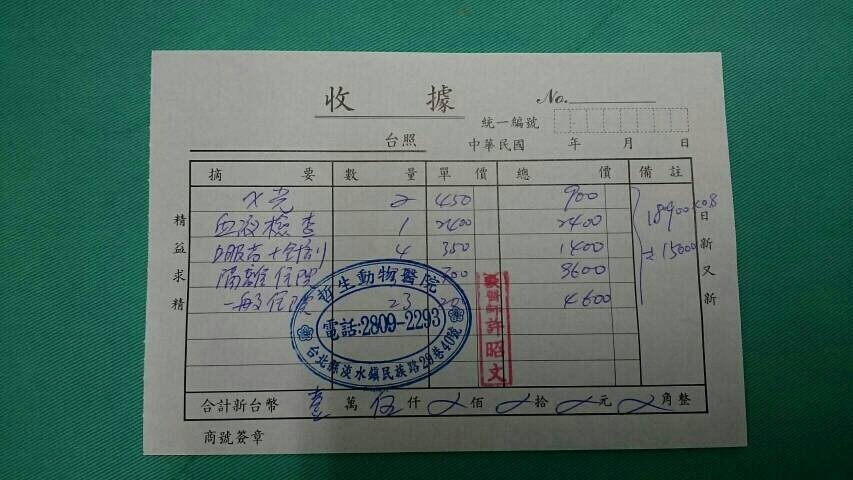 收 據
No.
統一編號
台照
中華民國 年 月 日
摘 要 數 量 單 價 總 價 備 註
X光 2 450 900
血液檢查 1 2400 2400
口服藥+針劑 4 350 1400
隔離住院 9600
一般住院 23 4600
18900×0.8
≒15000
精益求精
日新又新
哲生動物醫院
電話:2809-2293
台北縣淡水鎮民族路29巷40號
獸醫師許昭文
合計新台幣 壹 萬 伍 仟 佰 拾 元 角整
商號簽章